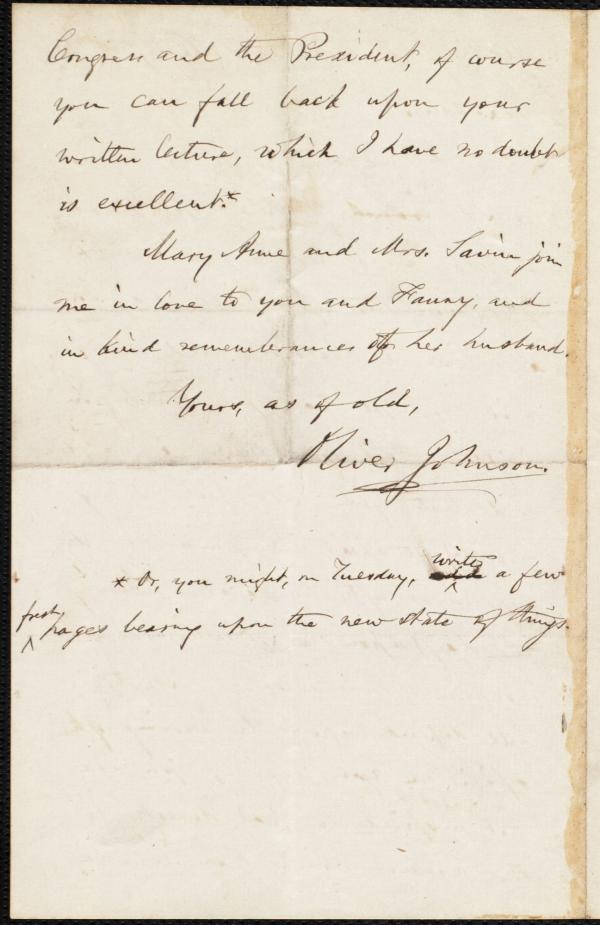 Congress and the President, of course
you can fall back upon your
written lecture, which I have no doubt
is excellent.*
Mary Anne and Mrs. Savin join
me in love to you and Fanny, and
in kind remembrances to her husband.
Yours, as of old,
Oliver Johnson.
* Or, you might, on Tuesday, write a few
fresh pages bearing upon the new state of things.